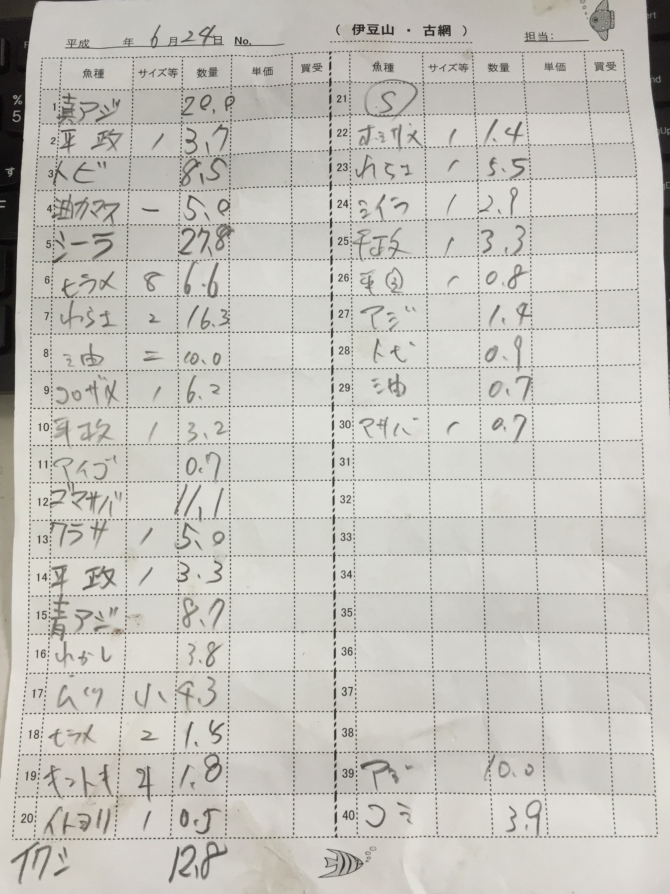 ( 伊豆山 ・ 古網 )
平成 年 6月24日 No. 担当:
魚種 サイズ等 数量 単価 買受
1 真アジ 20.0
2 平政 1 3.7
3 トビ 8.5
4 油カマス 一 5.0
5 シーラ 27.8
6 ヒラメ 8 6.6
7 わらさ 2 16.3
8 ミ由 二 10.0
9 コロザメ 1 6.2
10 平政 1 3.2
11 アイゴ 0.7
12 ゴマサバ 11.1
13 ワラサ 1 5.0
14 平政 1 3.3
15 青アジ 8.7
16 わかし 3.8
17 ムツ 小 4.3
18 ヒラメ 2 1.5
19 キントキ 4 1.8
20 イトヨリ 1 0.5
イワシ 12.8
魚種 サイズ等 数量 単価 買受
21 S
22 1 1.4
23 わらさ 1 5.5
24 1 2.9
25 平政 1 3.3
26 平 1 0.8
27 アジ 1.4
28 トビ 0.9
29 ミ由 0.7
30 マサバ 1 0.7
31
32
33
34
35
36
37
38
39 アジ 10.0
40 コミ 3.9